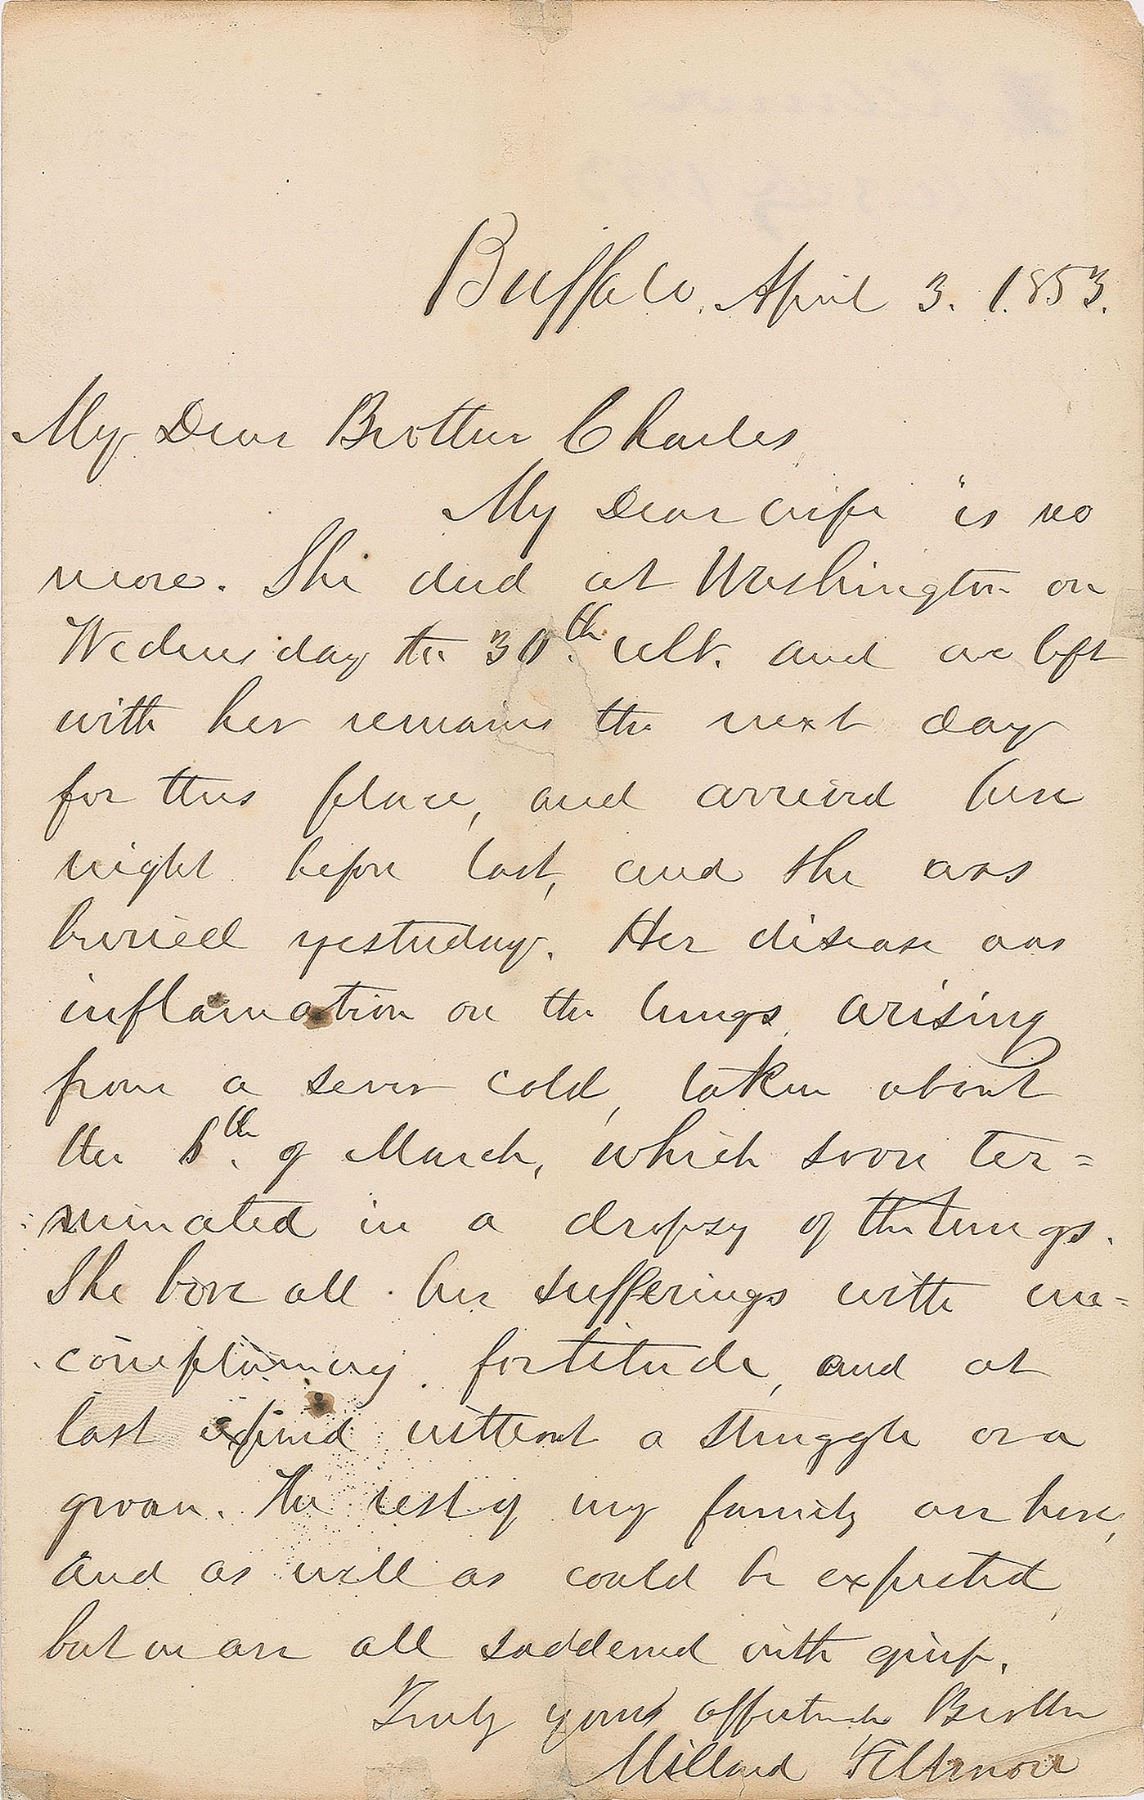 Buffalo, April 3. 1853.
My Dear Brother Charles
My Dear wife is no
more. She died at Washington on
Wednesday the 30th. ult. and we left
with her remains the next day
for this place, and arrived here
night before last, and she was
buried yesterday. Her disease was
inflamation on the lungs, arising
from a sever cold, taken about
the of March, which soon ter=
minated in a dropsy of the lungs.
She bore all her sufferings with un=
complaining fortitude, and at
last expired without a struggle or a
groan. The rest of my family are here,
and as well as could be expected,
but we are all saddened with grief.
Truly yours affectionate Brother
Millard Fillmore